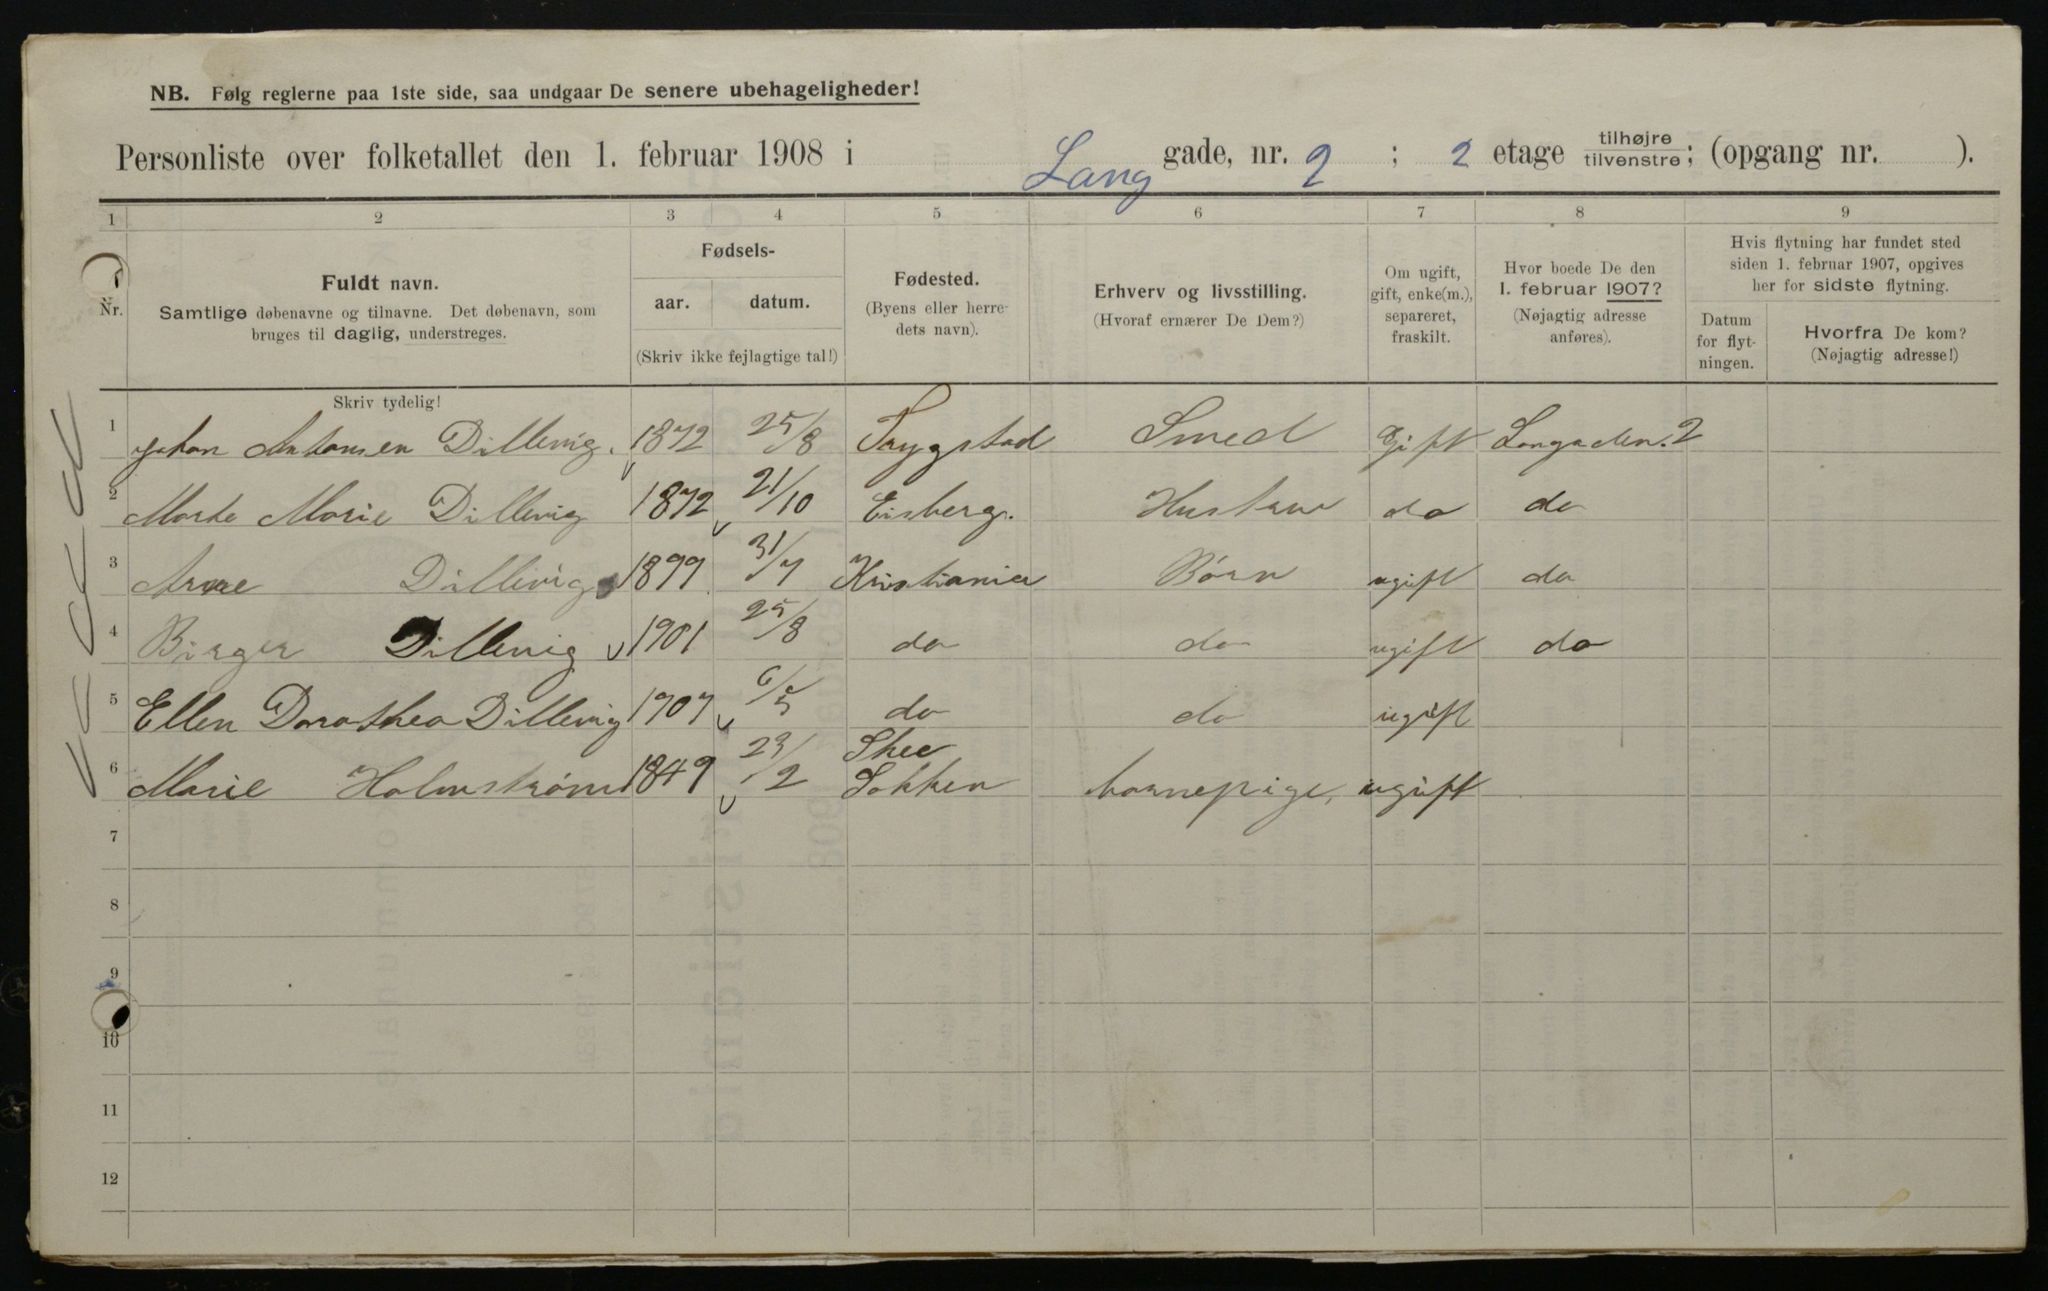 NB. Følg reglerne paa 1ste side, saa undgaar De senere ubehageligheder!
Personliste over folketallet den 1. februar 1908 i Lang gade, nr. 2 ; 2 etage tilhøjre tilvenstre; (opgang nr. ).
1 2 3 4 5 6 7 8 9
Nr.
Fuldt navn.
Samtlige døbenavne og tilnavne. Det døbenavn, som
bruges til daglig, understreges.
Fødsels-
aar. datum.
(Skriv ikke fejlagtige tal!)
Fødested.
(Byens eller herre-
dets navn).
Erhverv og livsstilling.
(Hvoraf ernærer De Dem?)
Om ugift,
gift, enke(m.),
separeret,
fraskilt.
Hvor boede De den
1. februar 1907?
(Nøjagtig adresse
anføres).
Hvis flytning har fundet sted
siden 1. februar 1907, opgives
her for sidste flytning.
Datum
for flyt-
ningen.
Hvorfra De kom?
(Nøjagtig adresse!)
Skriv tydelig!
1 Johan Antonsen Dillevig. 1872 25/8 Trygstad Smed Gift Langaden. 2
2 Marte Marie Dillevig 1872 21/10 Eisberg. Hustru do do
3 Arne Dillevig 1899 31/7 Kristiania Børn ugift do
4 Birger Dillevig 1901 25/8 do do ugift do
5 Ellen Dorothea Dillevig 1907 6/5 do do ugift
6 Marie Holmstrøm 1849 23/2 Skee Sokken barnepige, ugift
7
8
9
10
11
12